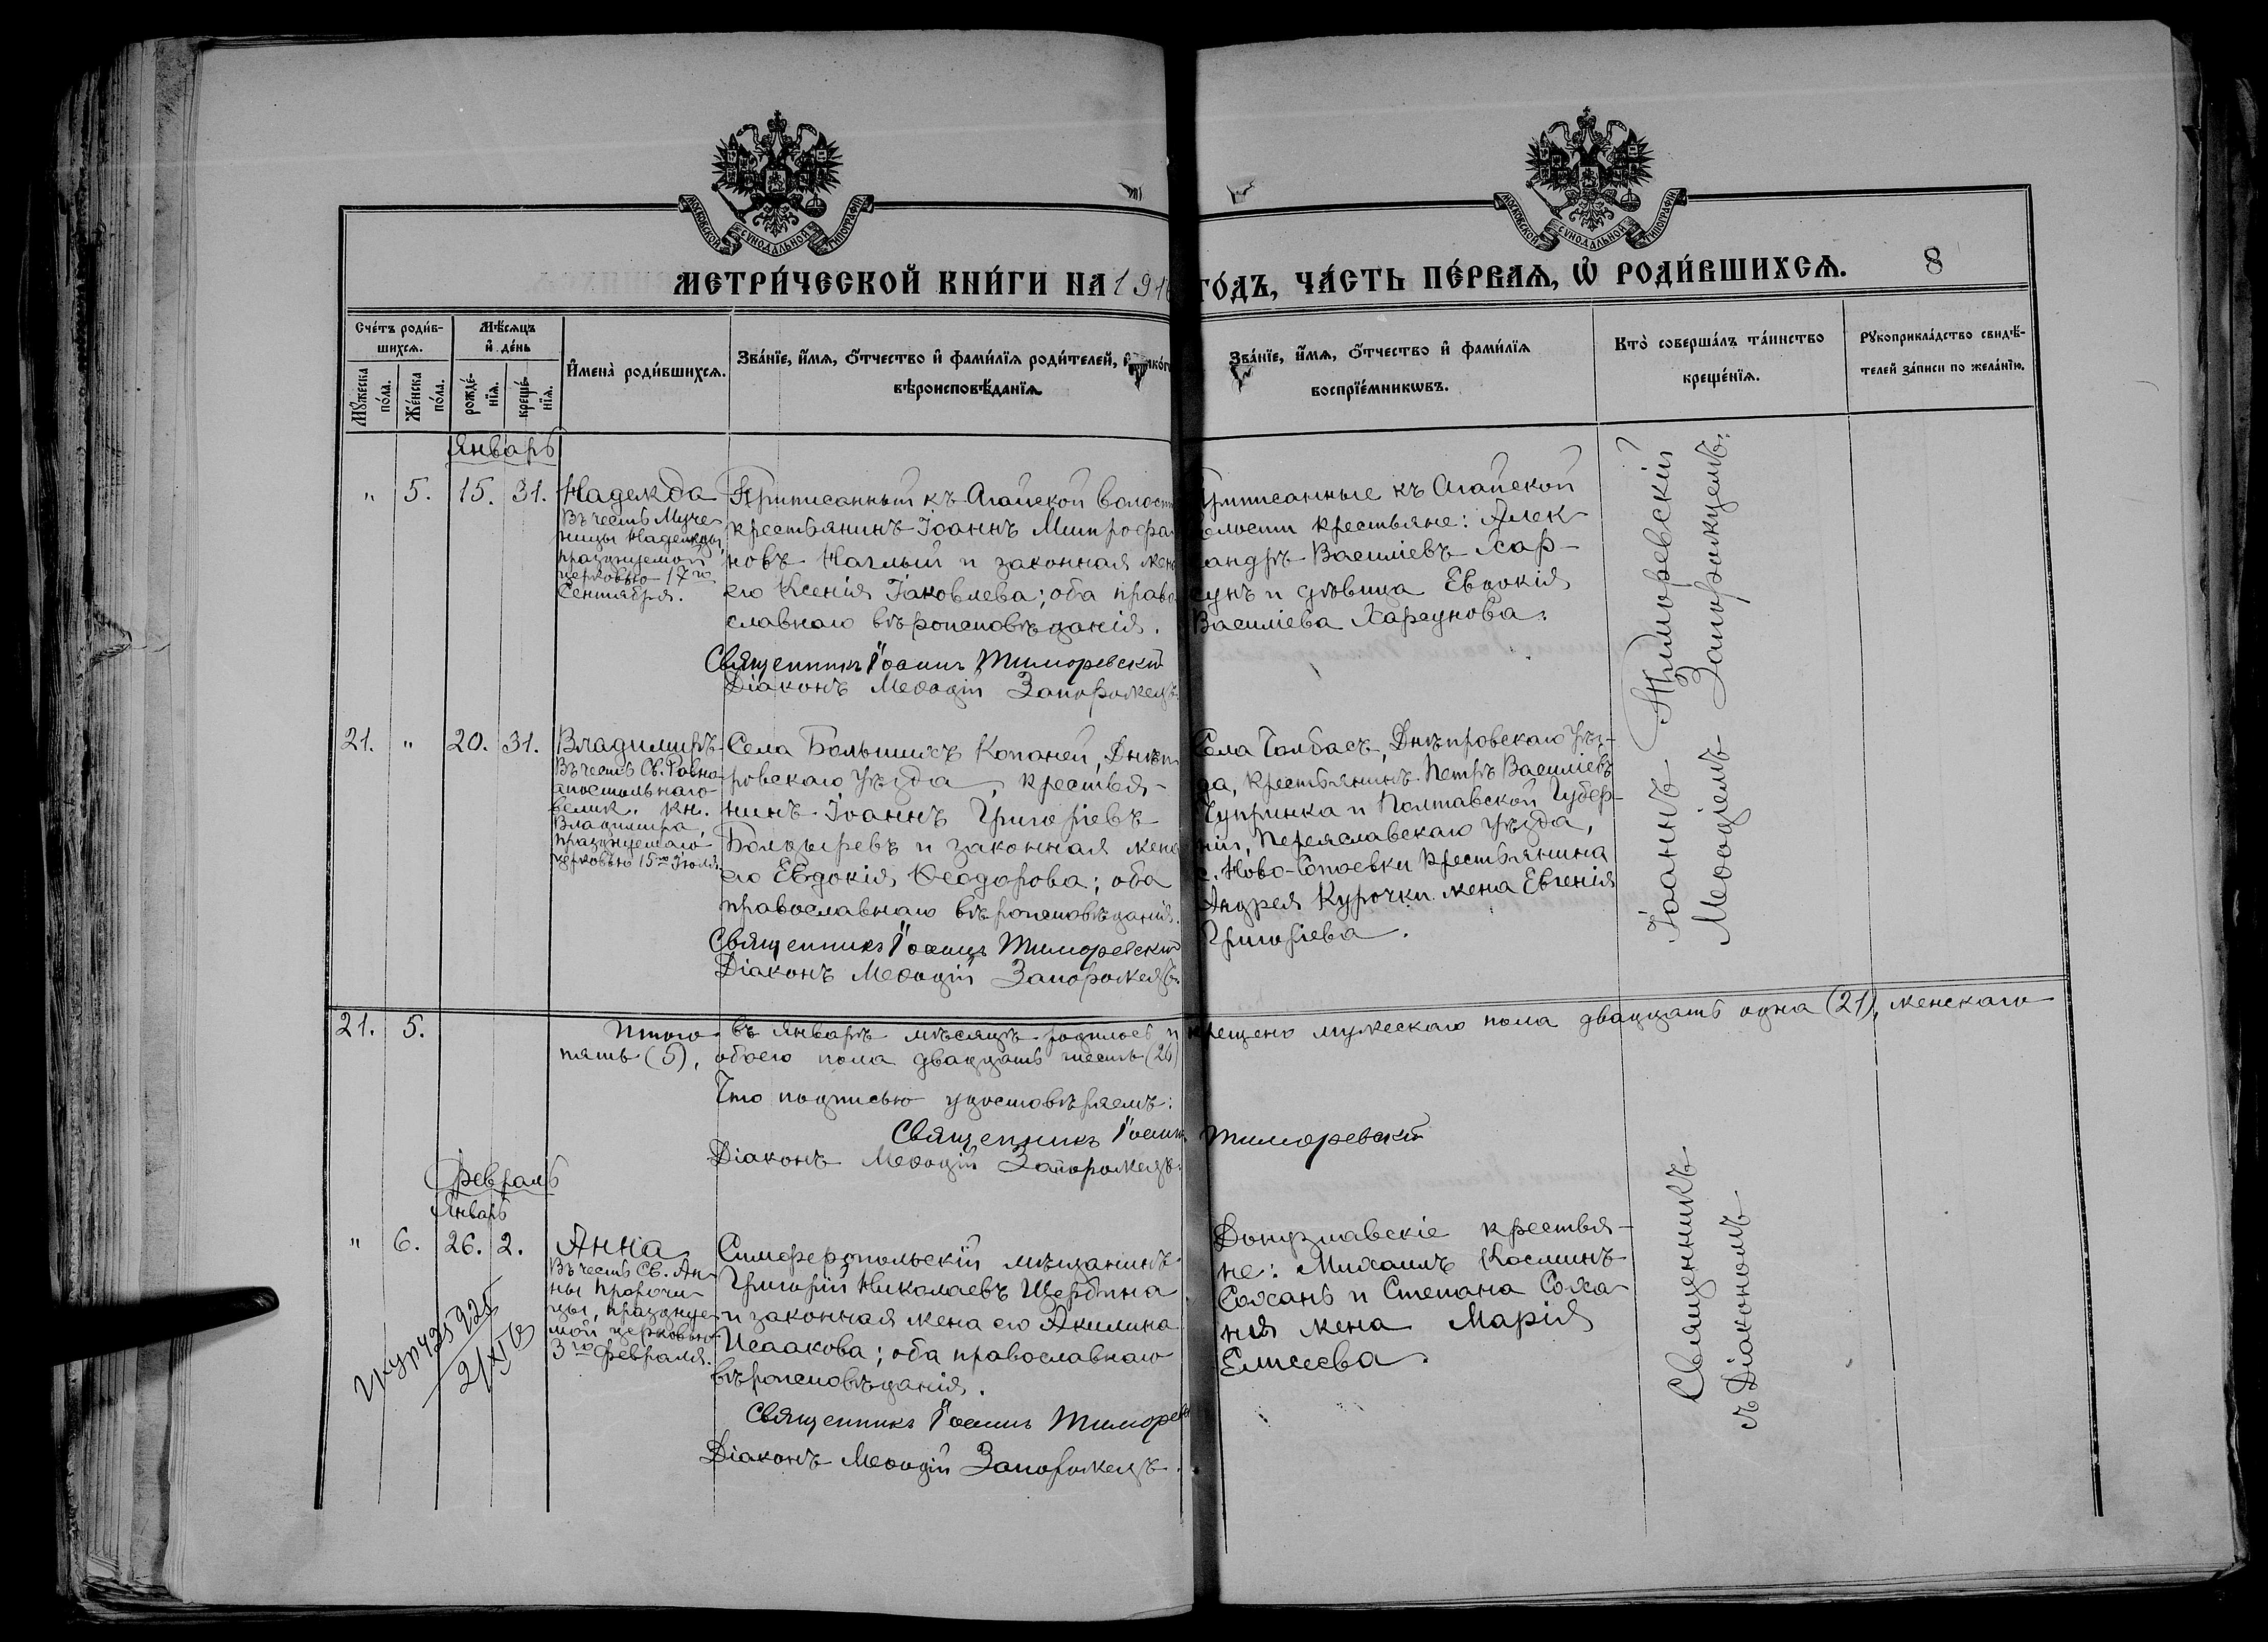 МОСКОВСКОЙ СѴНОДАЛЬНОЙ ТИПОГРАФІИ
МОСКОВСКОЙ СѴНОДАЛЬНОЙ ТИПОГРАФІИ
МЕТРИ́ЧЕСКОЙ КНИ́ГИ НА 191
ГО́ДЪ, ЧА́СТЬ ПЕ́РВАѦ, Ѡ҆ РОДИ́ВШИХСѦ.
8
Сче́тъ роди́в-
шихсѧ.
Мѣ́сѧцъ
и҆ де́нь
Мꙋ́жеска
по́ла.
Же́нска
по́ла.
рожде́-
нїѧ.
креще́-
нїѧ.
И҆мена̀ роди́вшихсѧ.
Зва́нїе, и҆́мѧ, ѻ҆́тчество и҆ фами́лїѧ роди́телей, и҆
вѣроисповѣ́данїѧ
Зва́нїе, и҆́мѧ, ѻ҆́тчество и҆ фами́лїѧ
воспрїе́мникѡвъ.
Кто̀ соверша́лъ та́инство
креще́нїѧ.
Рꙋкоприкла́дство свидѣ́-
телей за́писи по жела́нїю.
Январь
" 5. 15. 31.
Надежда
Въ честь Муче-
ницы Надежды,
празднуемой
церковью 17го
Сентября.
Приписанный къ Агайской волост
крестьянинъ Іоаннъ Митрофа
новъ Наглый и законная жен
его Ксенія Іаковлева; оба право
славнаго вѣроисповѣданія.
Священникъ Іоаннъ Тиморевскій
Діаконъ Меѳодій Запорожецъ.
Приписанные къ Агайской
волости крестьяне: Алек-
сандръ Василіевъ Хар-
сунъ и дѣвица Евдокія
Василіева Харсунова.
21. " 20. 31.
Владимиръ
Въ честь Св. Равно-
апостольнаго
велик. кн.
Владимира,
празднуемаго
церковью 15го Іюля.
Села Большихъ Копаней, Днѣп
ровскаго уѣзда, крестья-
нинъ Іоаннъ Григоріевъ
Болдыревъ и законная жена
его Евдокія Ѳеодорова; оба
православнаго вѣроисповѣданія.
Священникъ Іоаннъ Тиморевскій
Діаконъ Меѳодій Запорожецъ.
Села Чолбасъ, Днѣпровскаго уѣз-
да, крестьянинъ Петръ Василіевъ
Чупринка и Полтавской Губер-
ніи, Переяславскаго уѣзда,
с. Ново- крестьянина
Андрея Курочки жена Евгенія
Григоріева.
Іоаннъ Тиморевскій
Меѳодіемъ Запорожцемъ.
21. 5.
Итого въ январѣ мѣсяцѣ родилось и крещено мужескаго пола двадцать одна (21), женскаго
пять (5), обоего пола двадцать шесть (26)
Что подписью удостовѣряемъ:
Священникъ Іоаннъ Тиморевскій
Діаконъ Меѳодій Запорожецъ.
Февраль
Январь
" 6. 26. 2.
Анна
Въ честь Св. Ан-
ны Пророчи-
цы, празднуе-
мой церковью
3го Февраля.
Симферопольскій мѣщанинъ
Григорій Николаевъ Щербина
и законная жена его Акилина
Исаакова; оба православнаго
вѣроисповѣданія.
Священникъ Іоаннъ Тиморев
Діаконъ Меѳодій Запорожецъ.
Донузлавскіе крестья-
не: Михаилъ Косминъ
Сохань и Степана Соха-
ня жена Марія
Елисеева.
Священникъ
съ Діакономъ